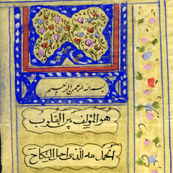 بسم الله الرحمن الرحيم
هو المؤلف بين القلوب
الحمد لله الذي احل النكاح